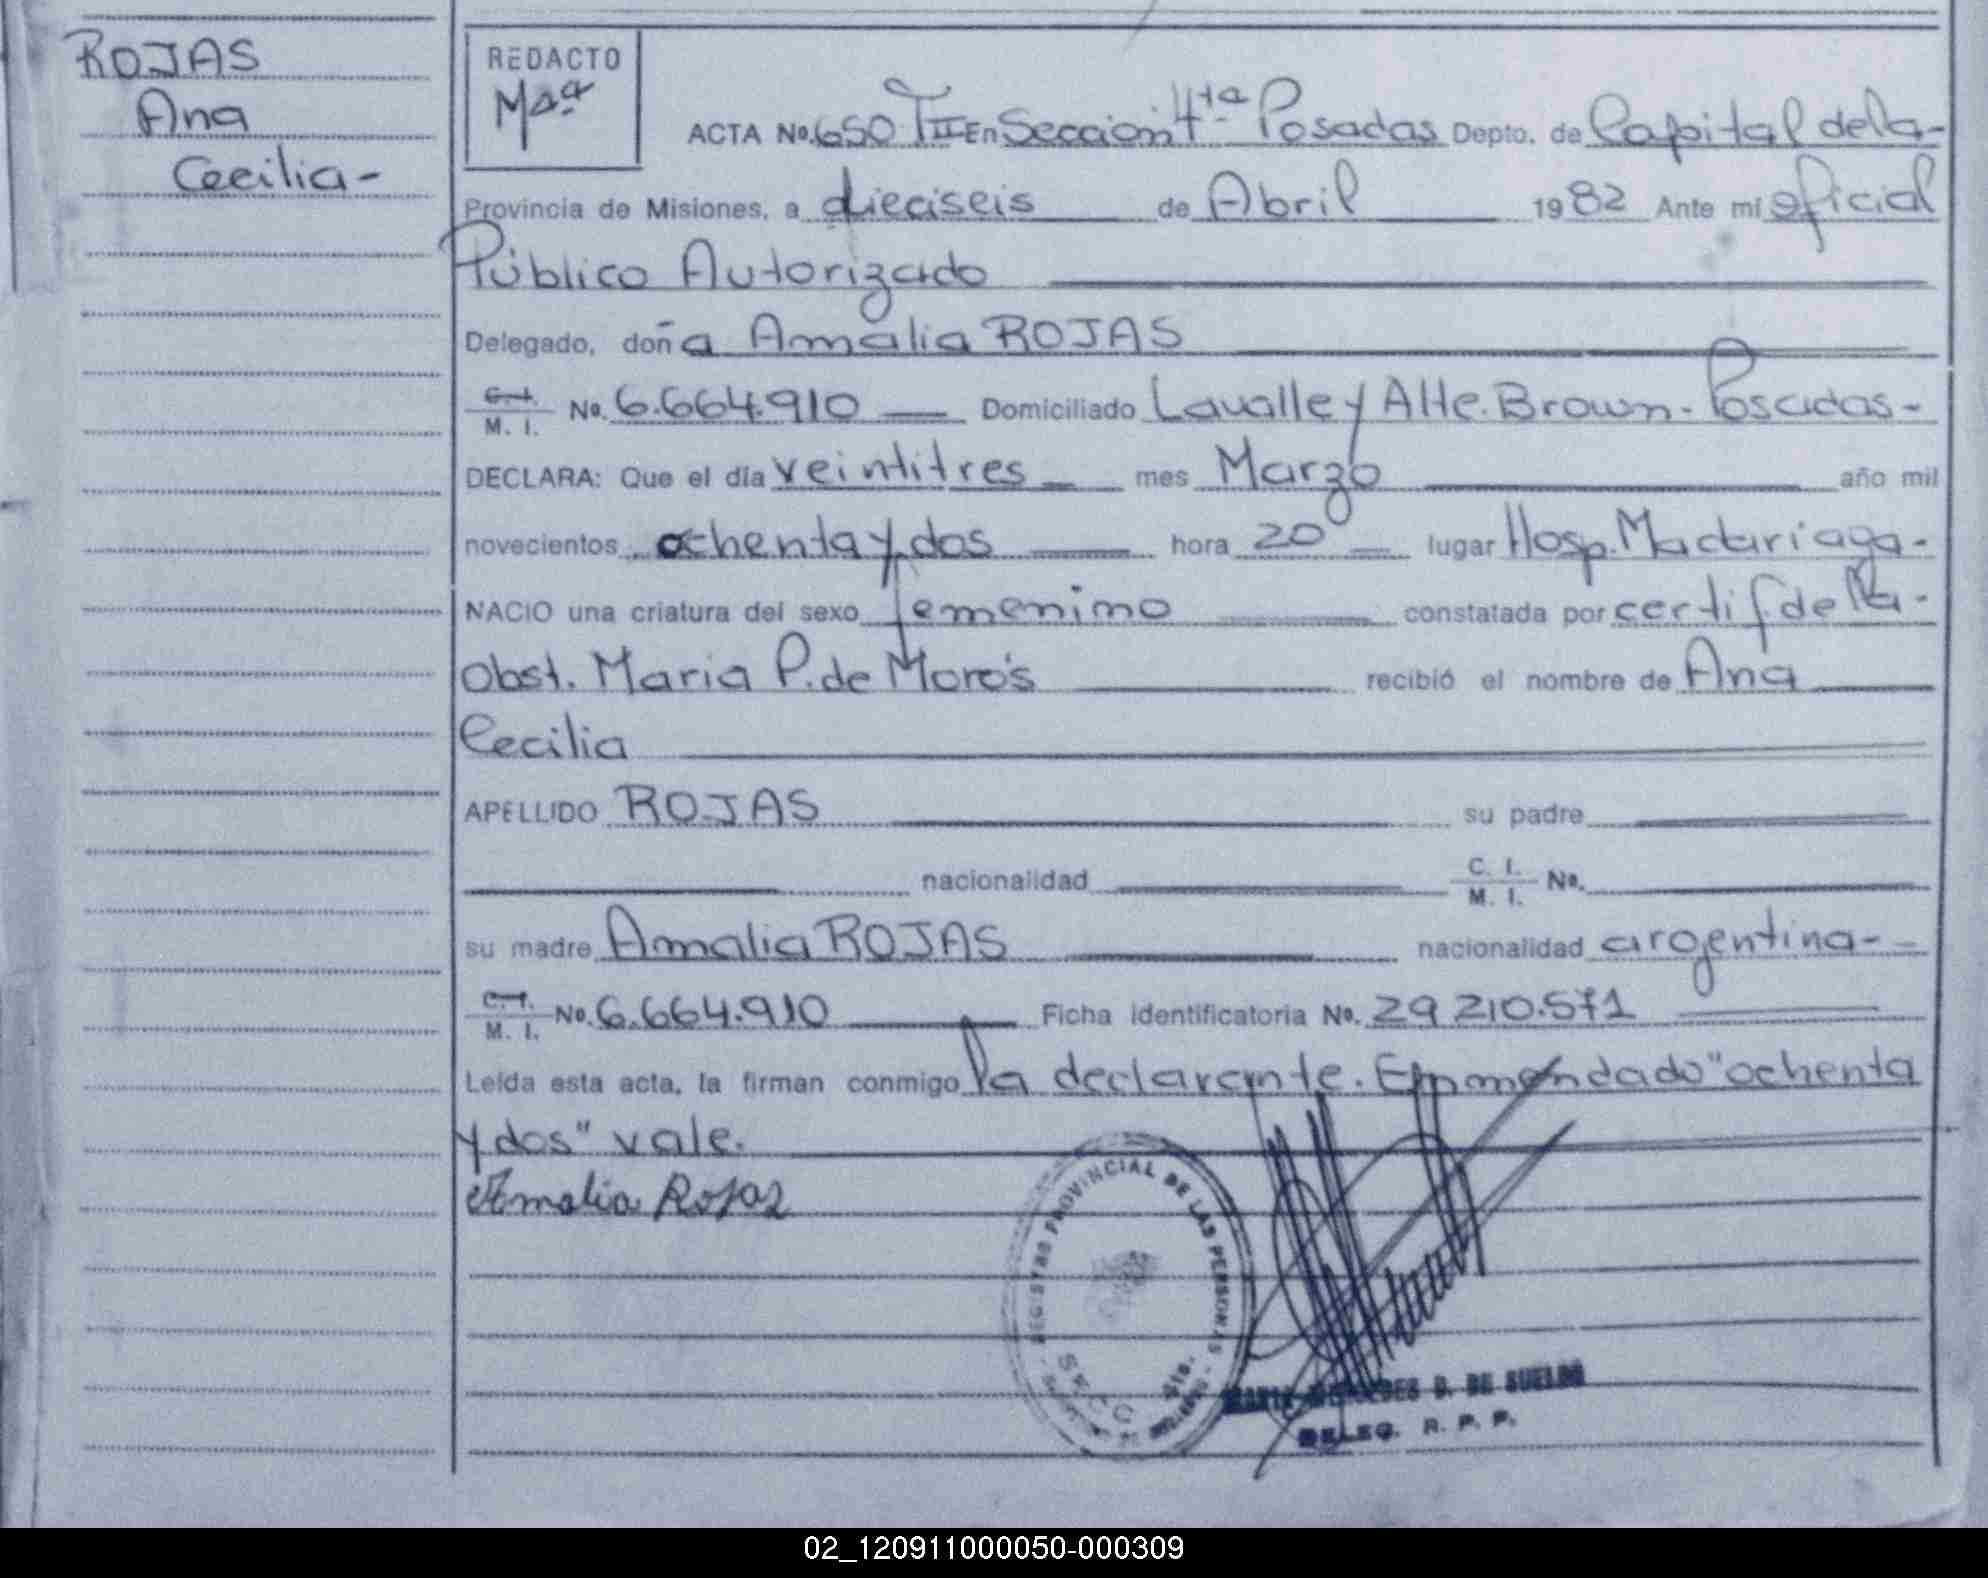 ROJAS
Ana
Cecilia-
REDACTO
Mªª
ACTA No. 650 TII En Seccion 4ta Posadas Depto. de Capital de la-
Provincia de Misiones, a dieciseis de Abril 1982 Ante mí oficial
Público Autorizado
Delegado, doña Amalia ROJAS
C. I. M. I. No. 6.664.910 Domiciliado Lavalle y Alte. Brown- Posadas-
DECLARA: Que el día veintitres mes Marzo año mil
novecientos ochenta y dos hora 20 lugar Hosp. Madariaga-
NACIO una criatura del sexo femenino constatada por certif. de la-
obst. Maria P. de Morós recibió el nombre de Ana
Cecilia
APELLIDO ROJAS su padre
nacionalidad C. I. M. I. No.
su madre Amalia ROJAS nacionalidad argentina-
C. I. M. I. No. 6.664.910 Ficha identificatoria No. 29 210.571
Leída esta acta, la firman conmigo la declarante. Enmendado "ochenta
y dos" vale.
Amalia Rojas
REGISTRO PROVINCIAL DE LAS PERSONAS
SECC
MERCEDES D. DE SUELDO
DELEG. R. P. P.
02_120911000050-000309